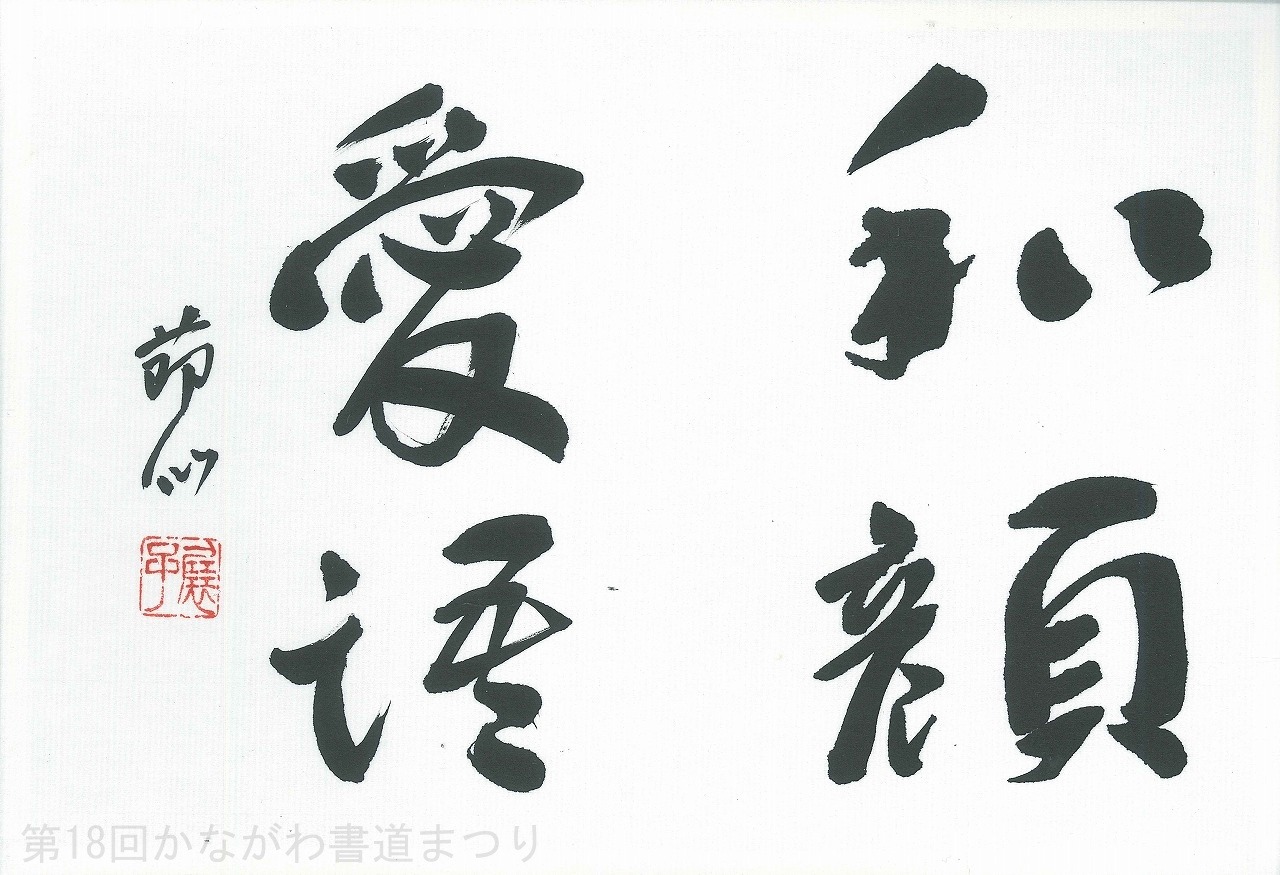 和顔
愛語
第18回かながわ書道まつり